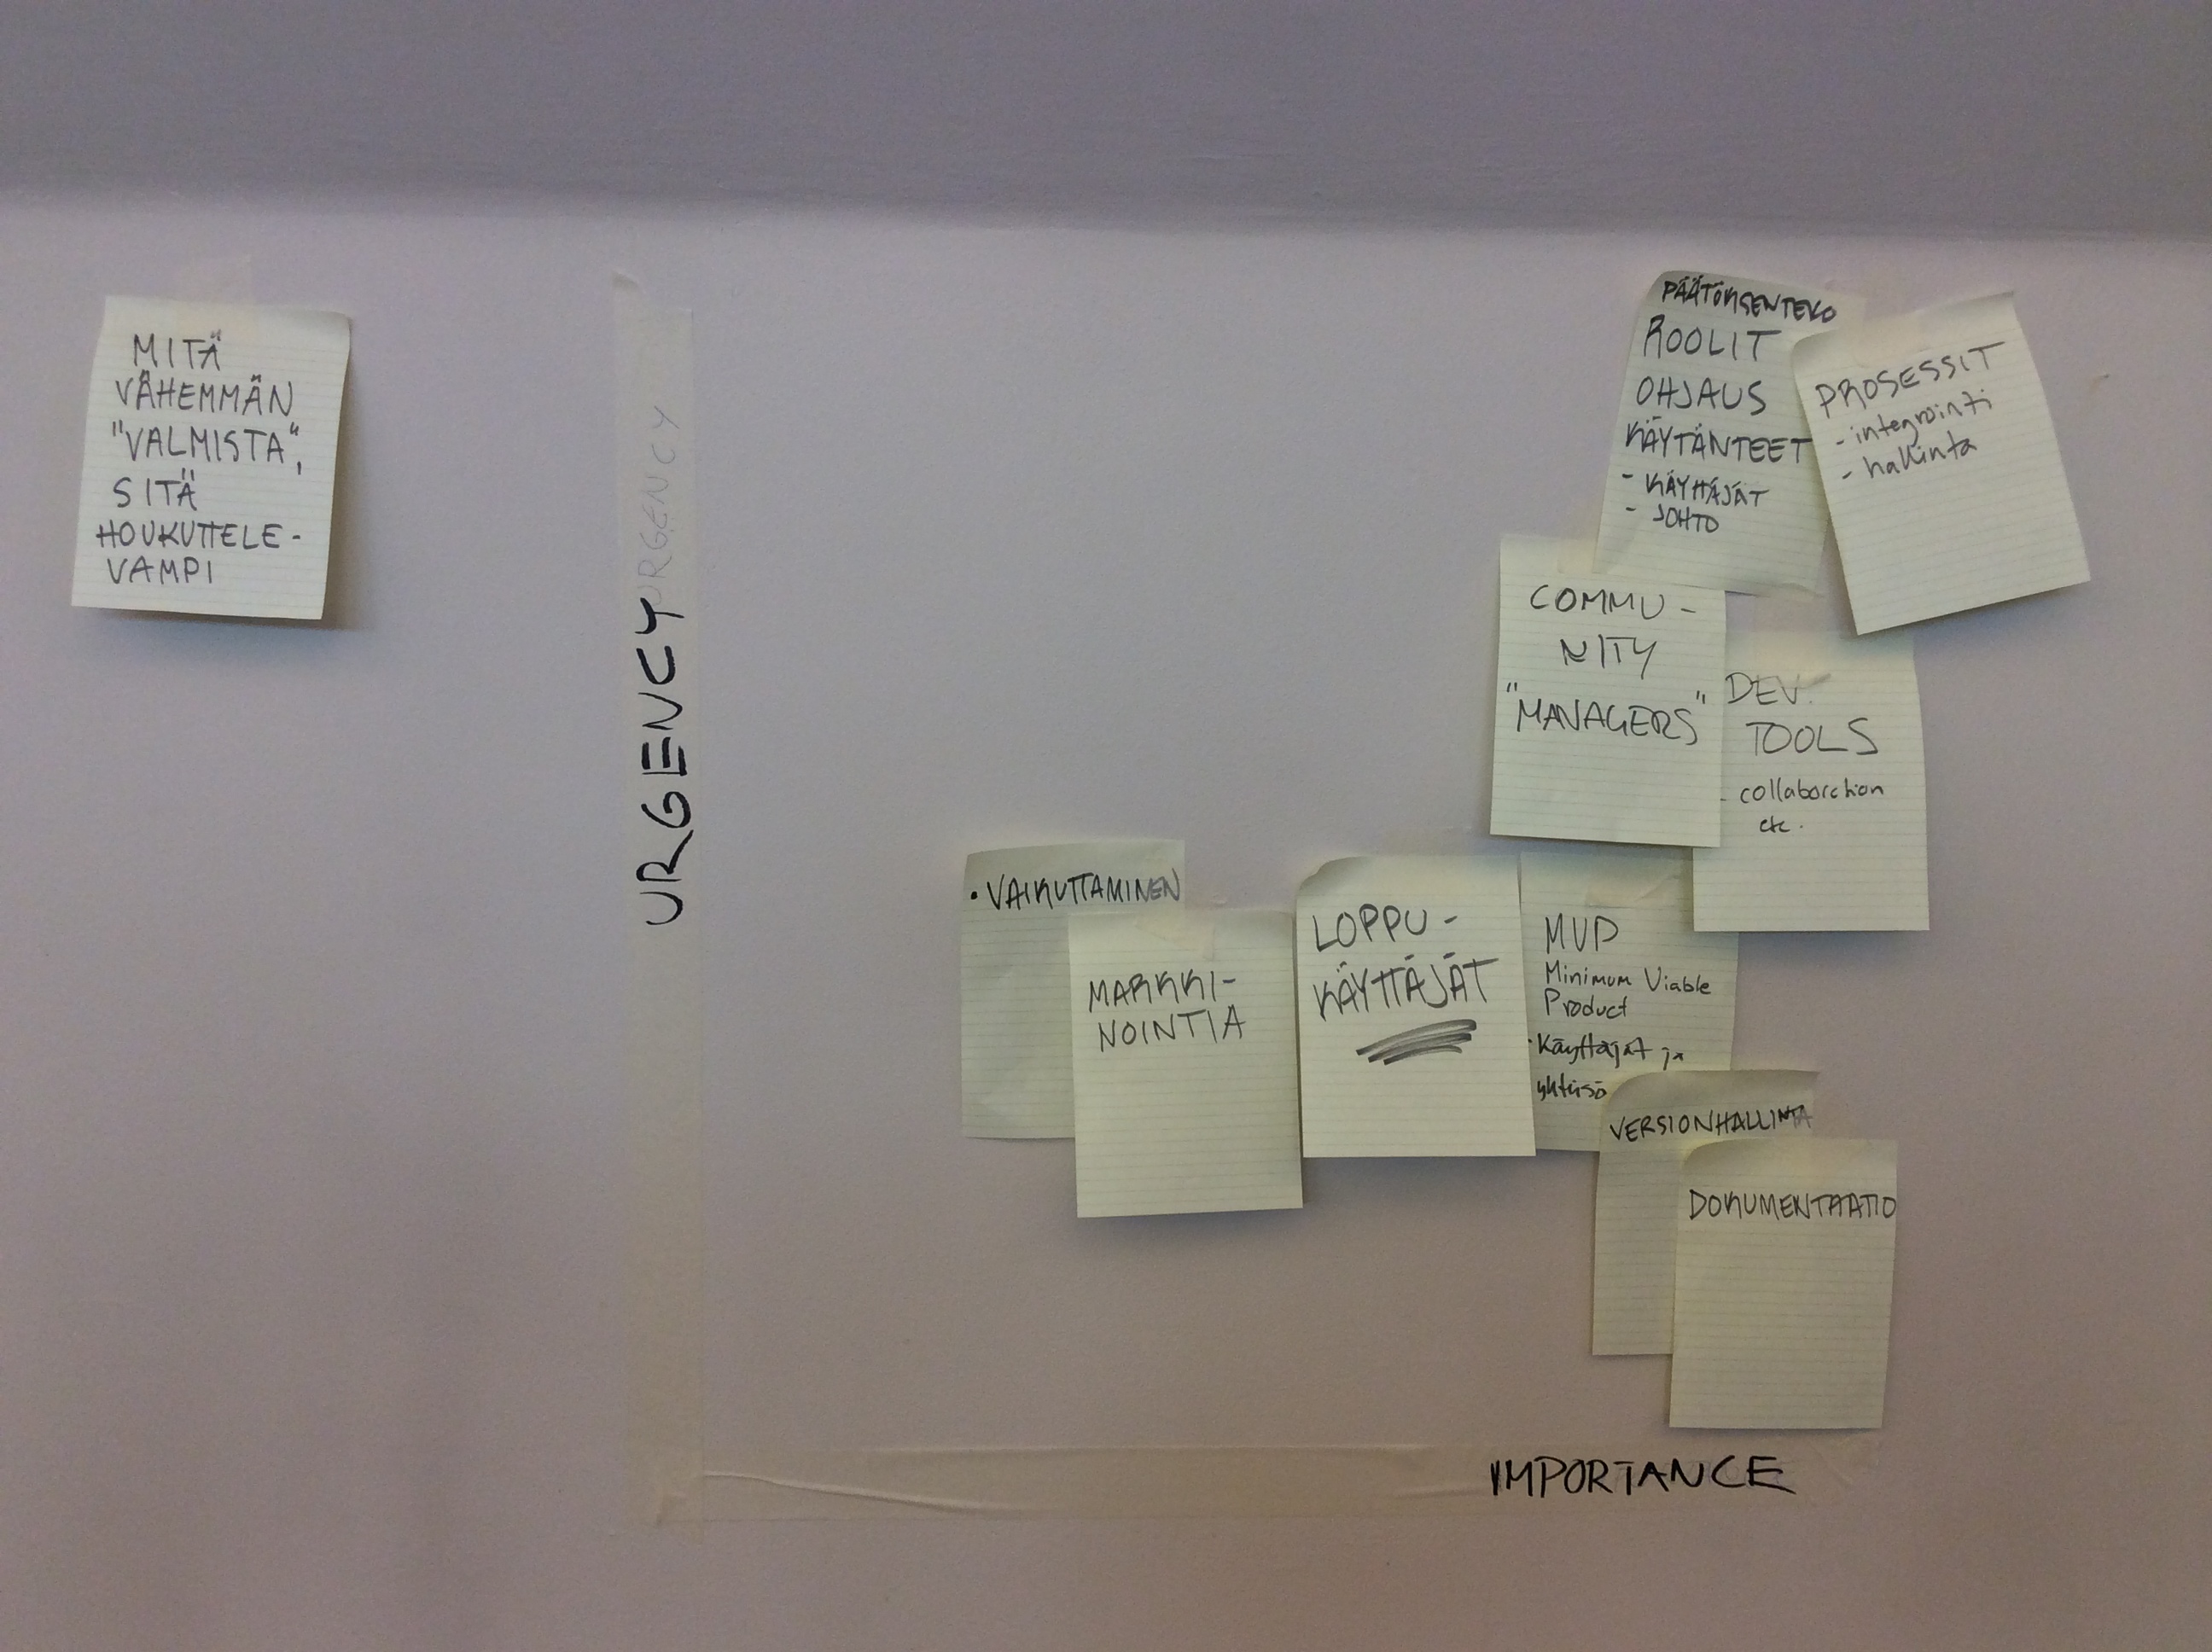 MITÄ
VÄHEMMÄN
"VALMISTA",
SITÄ
HOUKUTTELE-
VAMPI
URGENCY
URGENCY
PÄÄTÖKSENTEKO
ROOLIT
OHJAUS
KÄYTÄNTEET
- KÄYTTÄJÄT
- JOHTO
PROSESSIT
- integrointi
- hallinta
COMMU-
NITY
"MANAGERS"
DEV.
TOOLS
- collaboration
etc.
• VAIKUTTAMINEN
MARKKI-
NOINTIA
LOPPU-
KÄYTTÄJÄT
MVP
Minimum Viable
Product
- Käyttäjät ja
yhteisö
VERSIONHALLINTA
DOKUMENTAATIO
IMPORTANCE